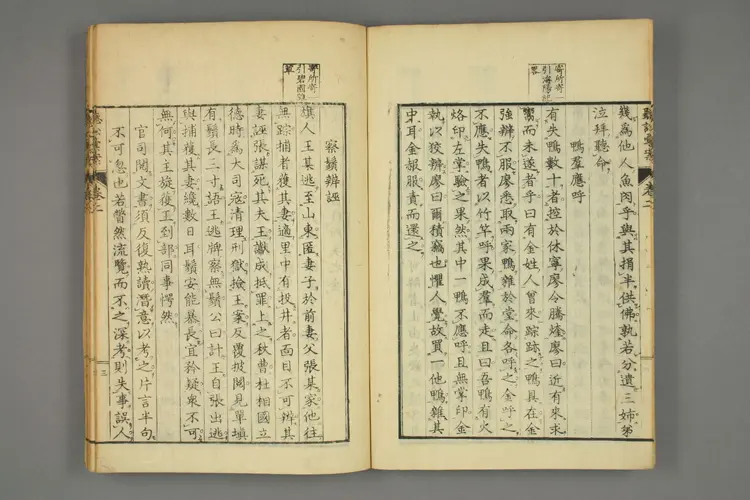 幾爲他人魚肉乎與其捐半供佛孰若分遺三姊弟
泣拜聽命
鴨羣應呼
有失鴨數十者控於休寧廖令騰煃廖曰近有來求
鬻而未遂者乎曰有金姓人曾來踪跡之鴨具在金
強辨不服廖悉取兩家鴨雜於堂命各呼之金呼之
不應失鴨者以竹竿呼果成羣而走且曰吾鴨有火
烙印左掌驗之果然其中一鴨不應呼且無掌印金
執以狡辨廖曰爾積竊也懼人覺故買一他鴨雜其
中耳金赧服責而還之
寄所寄
引海陽紀
畧
寄所寄
引碧園
草
察鬚辨誣
旗人王某逃至山東匿妻子於前妻父張某家他往
無踪捕者獲其妻適里中有投井者面目不可辨其
妻誣張謀死其夫王讞成抵罪上之秋曹杜相國立
德時爲大司寇清理刑獄撿王案反覆披閱見單填
有鬚長三寸語王逃牌察無鬚公曰計王自張出逃
與捕獲其妻纔數日耳鬚安能暴長宜矜疑衆不可
無何其主旋復王到部同事愕然
官司閱文書須反復熟讀潛意以考之片言半句
不可忽也若瞥然流覽而不之深考則失事誤人
卷二
三